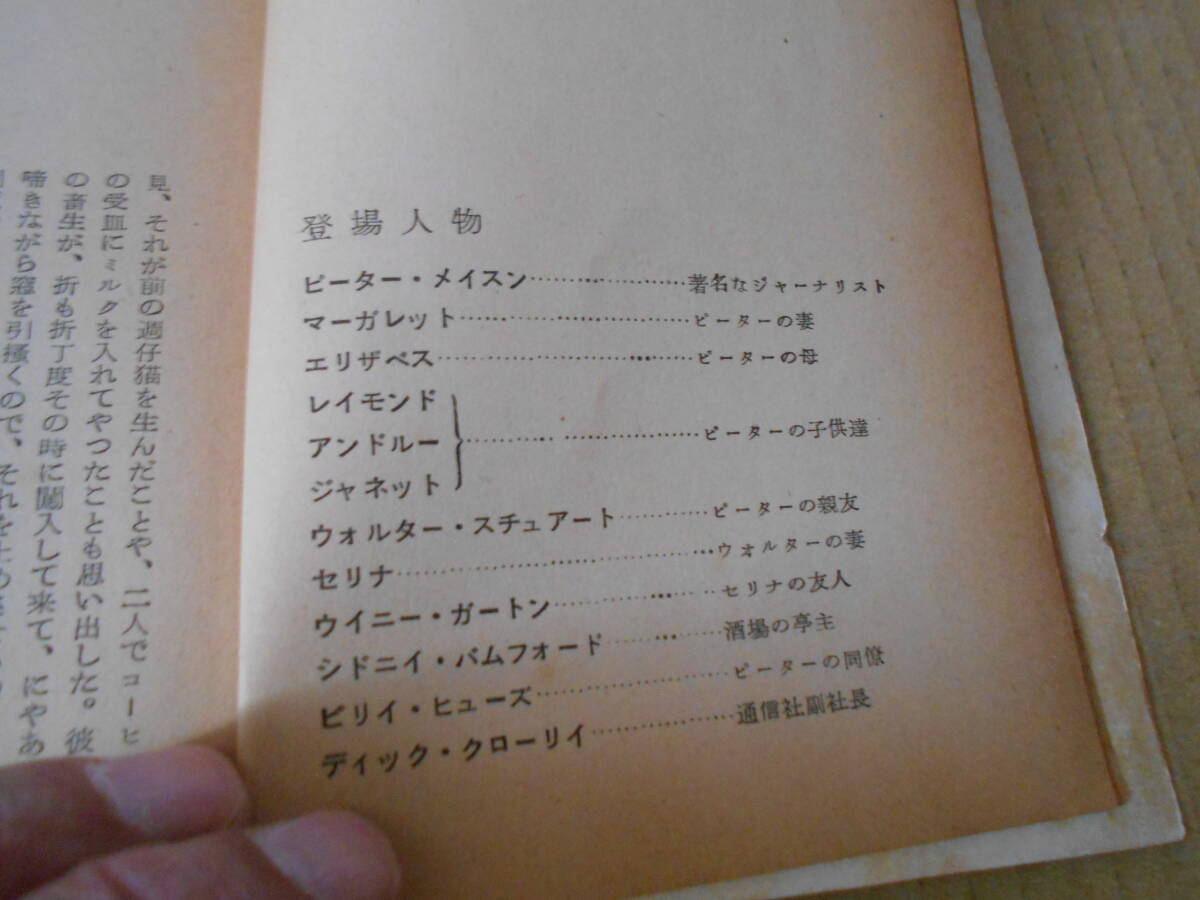 見、それが前の週仔猫を生んだことや、二人でコーヒ
の受皿にミルクを入れてやつたことも思い出した。彼
の畜生が、折も折丁度その時に闖入して来て、にやあ
啼きながら窓を引掻くので、それを止め
登場人物
ピーター・メイスン………………著名なジャーナリスト
マーガレット………………ピーターの妻
エリザベス………………ピーターの母
レイモンド
アンドルー………………ピーターの子供達
ジャネット
ウォルター・スチュアート…………ピーターの親友
セリナ………………ウォルターの妻
ウイニー・ガートン………………セリナの友人
シドニイ・バムフォード…………酒場の亭主
ビリイ・ヒューズ………………ピーターの同僚
ディック・クローリイ…………通信社副社長